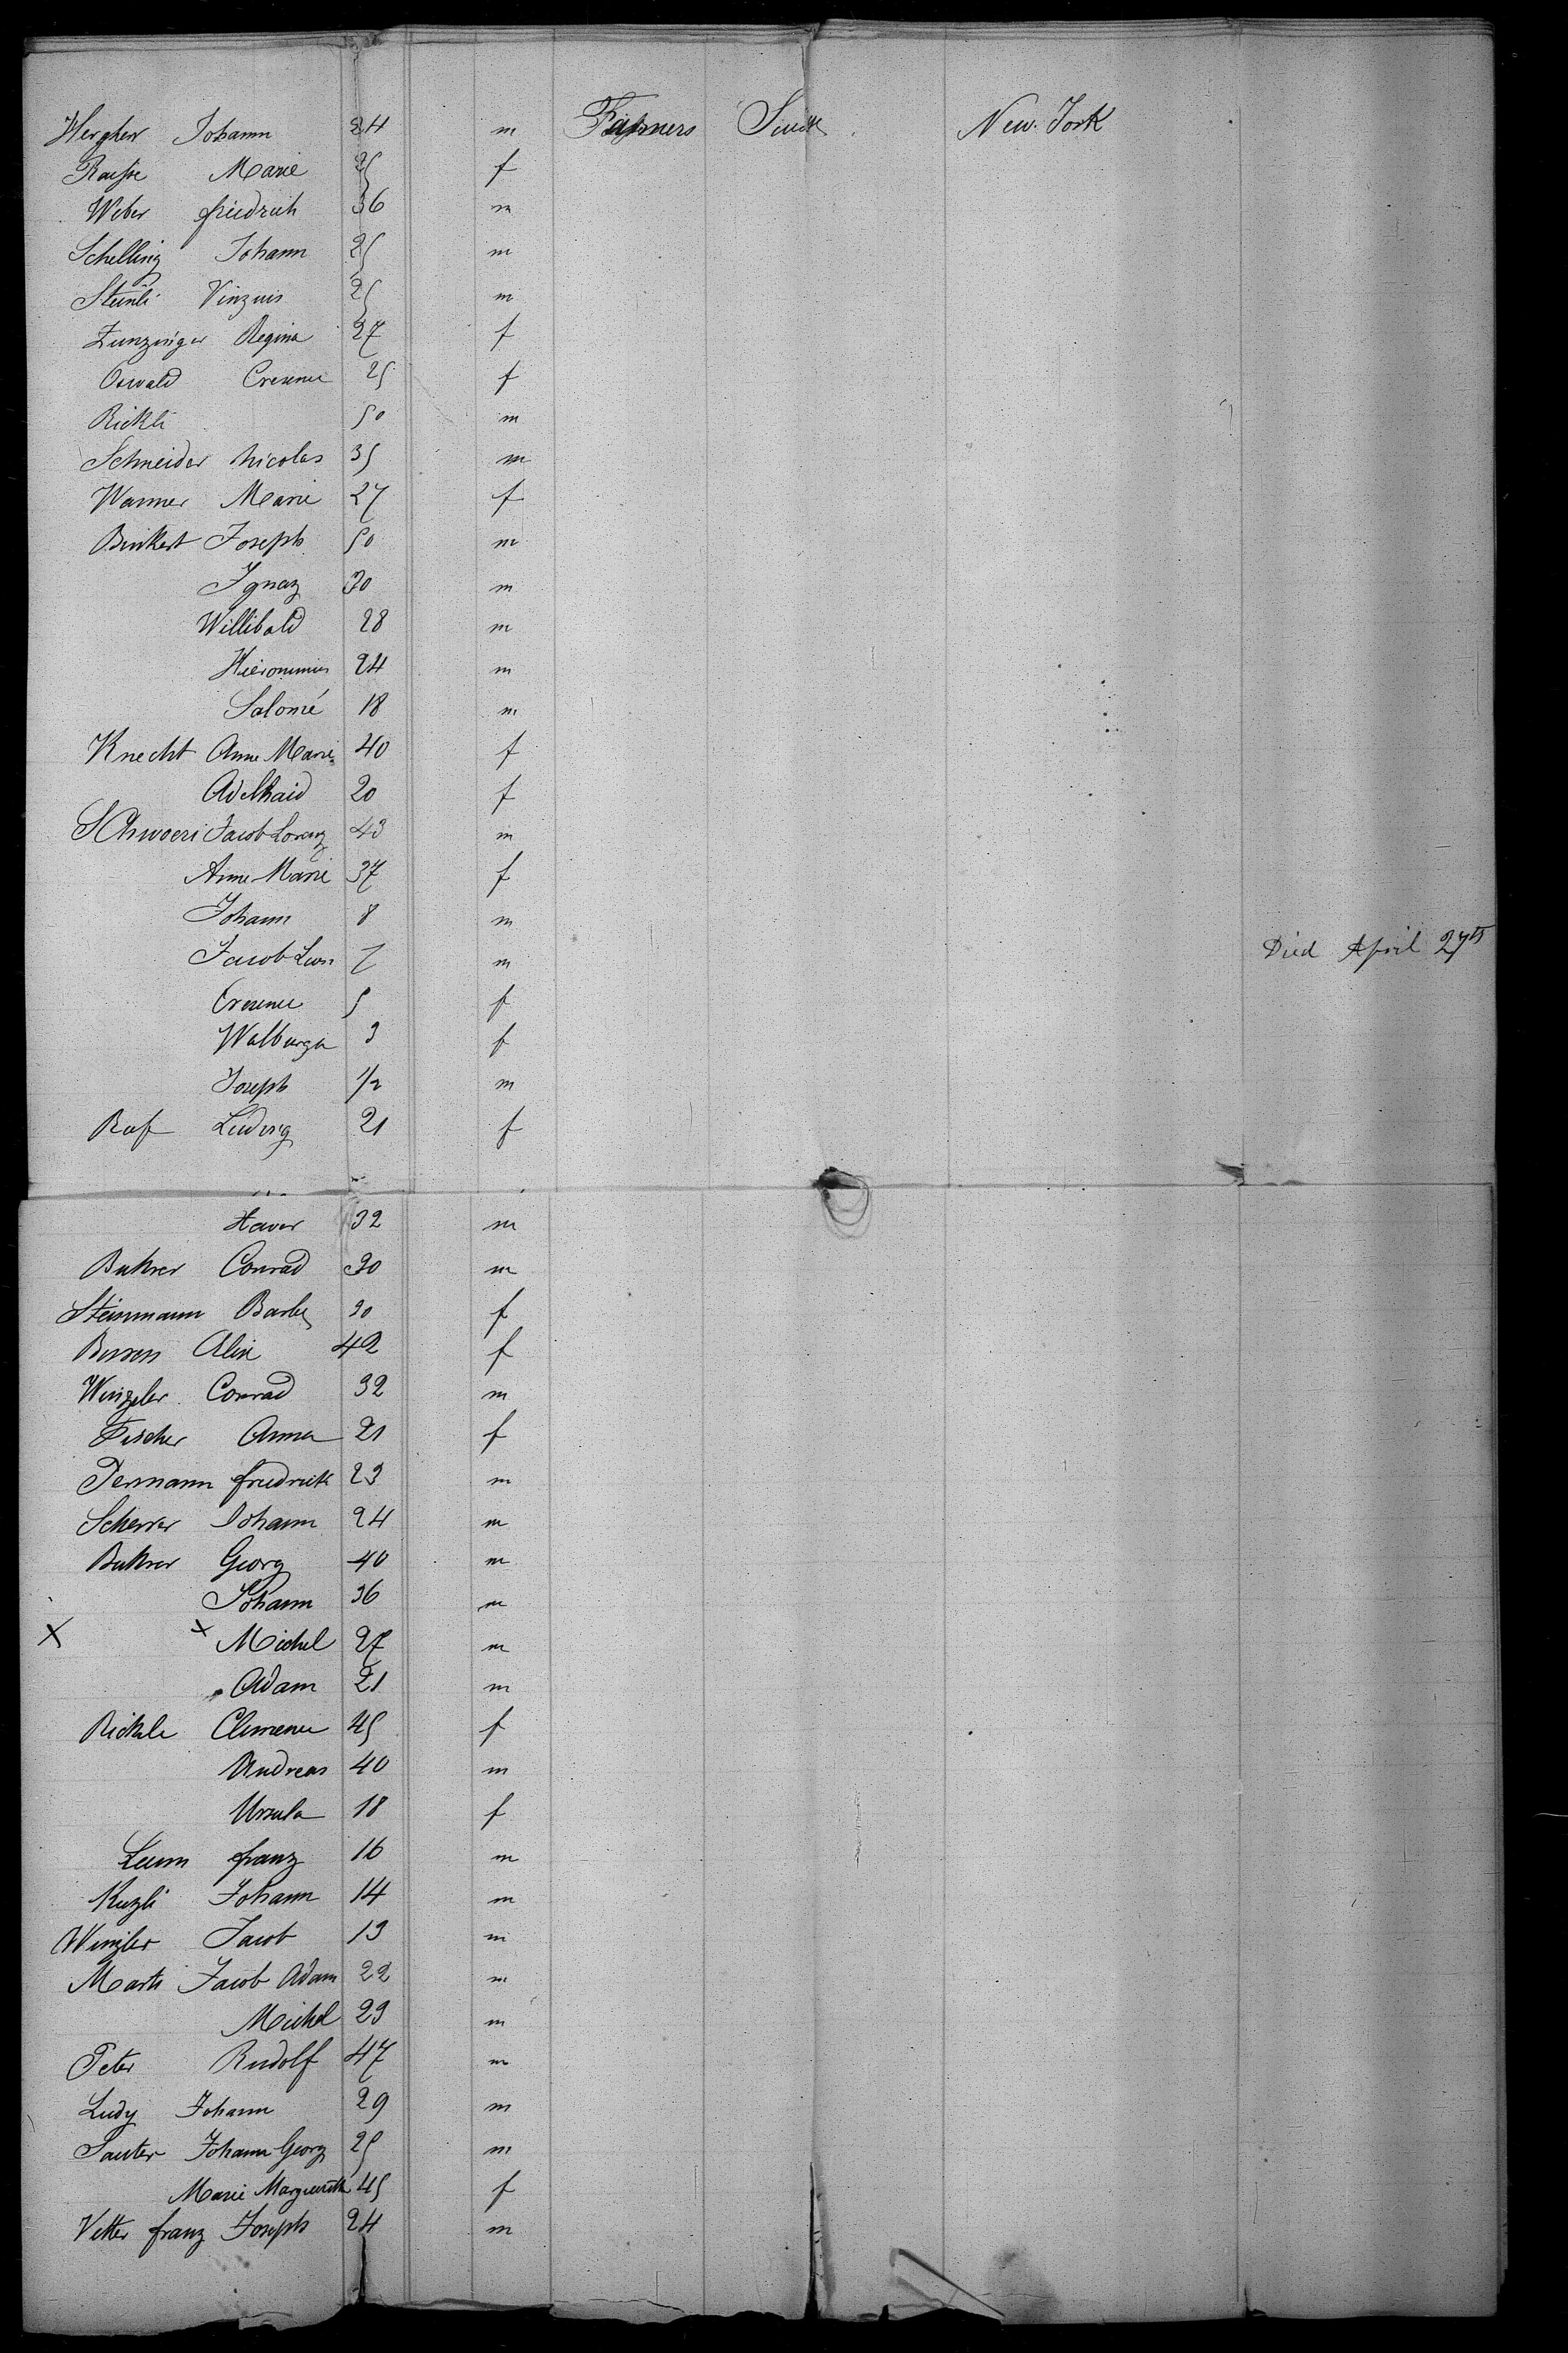 Hergherr Johann 24 m Farmers Suisse New-York
Rausse Marie 25 f
Weber friedrich 36 m
Schelling Johann 25 m
Steinli Vinzens 25 m
Zunzinger Regina 27 f
Oswald Cresence 25 f
Rickli 50 m
Schneider Nicolas 35 m
Wanner Marie 27 f
Binkert Joseph 50 m
Ignaz 30 m
Willibald 28 m
Hieronimus 24 m
Salomé 18 m
Knecht Anne Marie 40 f
Adelhaid 20 f
Schwoeri Jacob Lorenz 43 m
Anne Marie 37 f
Johann 8 m
Jacob Leon 7 m Died April 27th
Cresence 5 f
Walburga 3 f
Joseph 1/2 m
Ruf Ludwig 21 f
Xaver 32 m
Buhrer Conrad 30 m
Steinmann Barb 30 f
42 f
Winzeler Conrad 32 m
Fischer Anna 21 f
Permann friedrich 23 m
Scherrer Johann 24 m
Buhrer Georg 40 m
Johann 36 m
x x Michel 27 m
Adam 21 m
Rickle Clemence 45 f
Andreas 40 m
Ursula 18 f
franz 16 m
Kuzli Johann 14 m
Winzler Jacob 13 m
Marti Jacob Adam 22 m
Michel 23 m
Peter Rudolf 47 m
Ludy Johann 29 m
Sauter Johann Georg 25 m
Marie Marguerith 45 f
Vetter franz Joseph 24 m